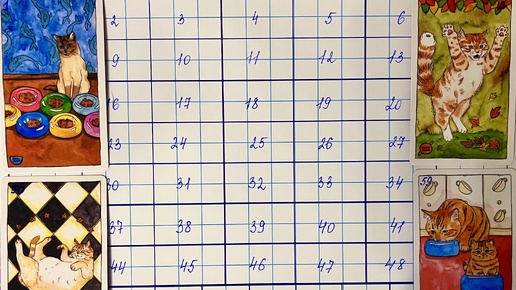 2 3 4 5 6
9 10 11 12 13
16 17 18 19 20
23 24 25 26 27
30 31 32 33 34
37 38 39 40 41
44 45 46 47 48
59